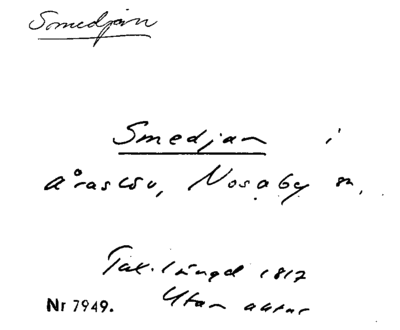 Smedjan
Smedjan i
Åraslöv, Nosaby sn.
Tax.längd 1817
Nr 7949. Utan